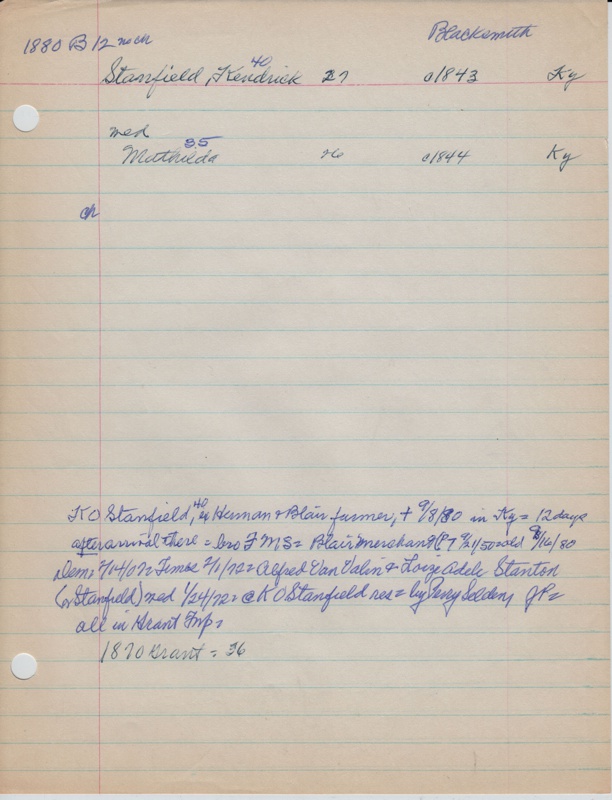 1880 B 12 no ch Blacksmith
Stanfield, Kendrick 40 27 c1843 Ky
med
Mathilda 35 26 c1844 Ky
ch
K O Stanfield, 40 Herman & Blair farmer, + 9/8/80 in Ky = 12 days
after arrival there = bro F M S = Blair merchant 9/21/50 = old 9/16/80
Dem = 7/14/07 = Times 2/1/72 = Alfred Van Valin & Loize Adele Stanton
(or Stanfield) med 1/24/72 = @ K O Stanfield res = by Perry Selden, JP =
all in Grant Twp =
1870 Grant = 36